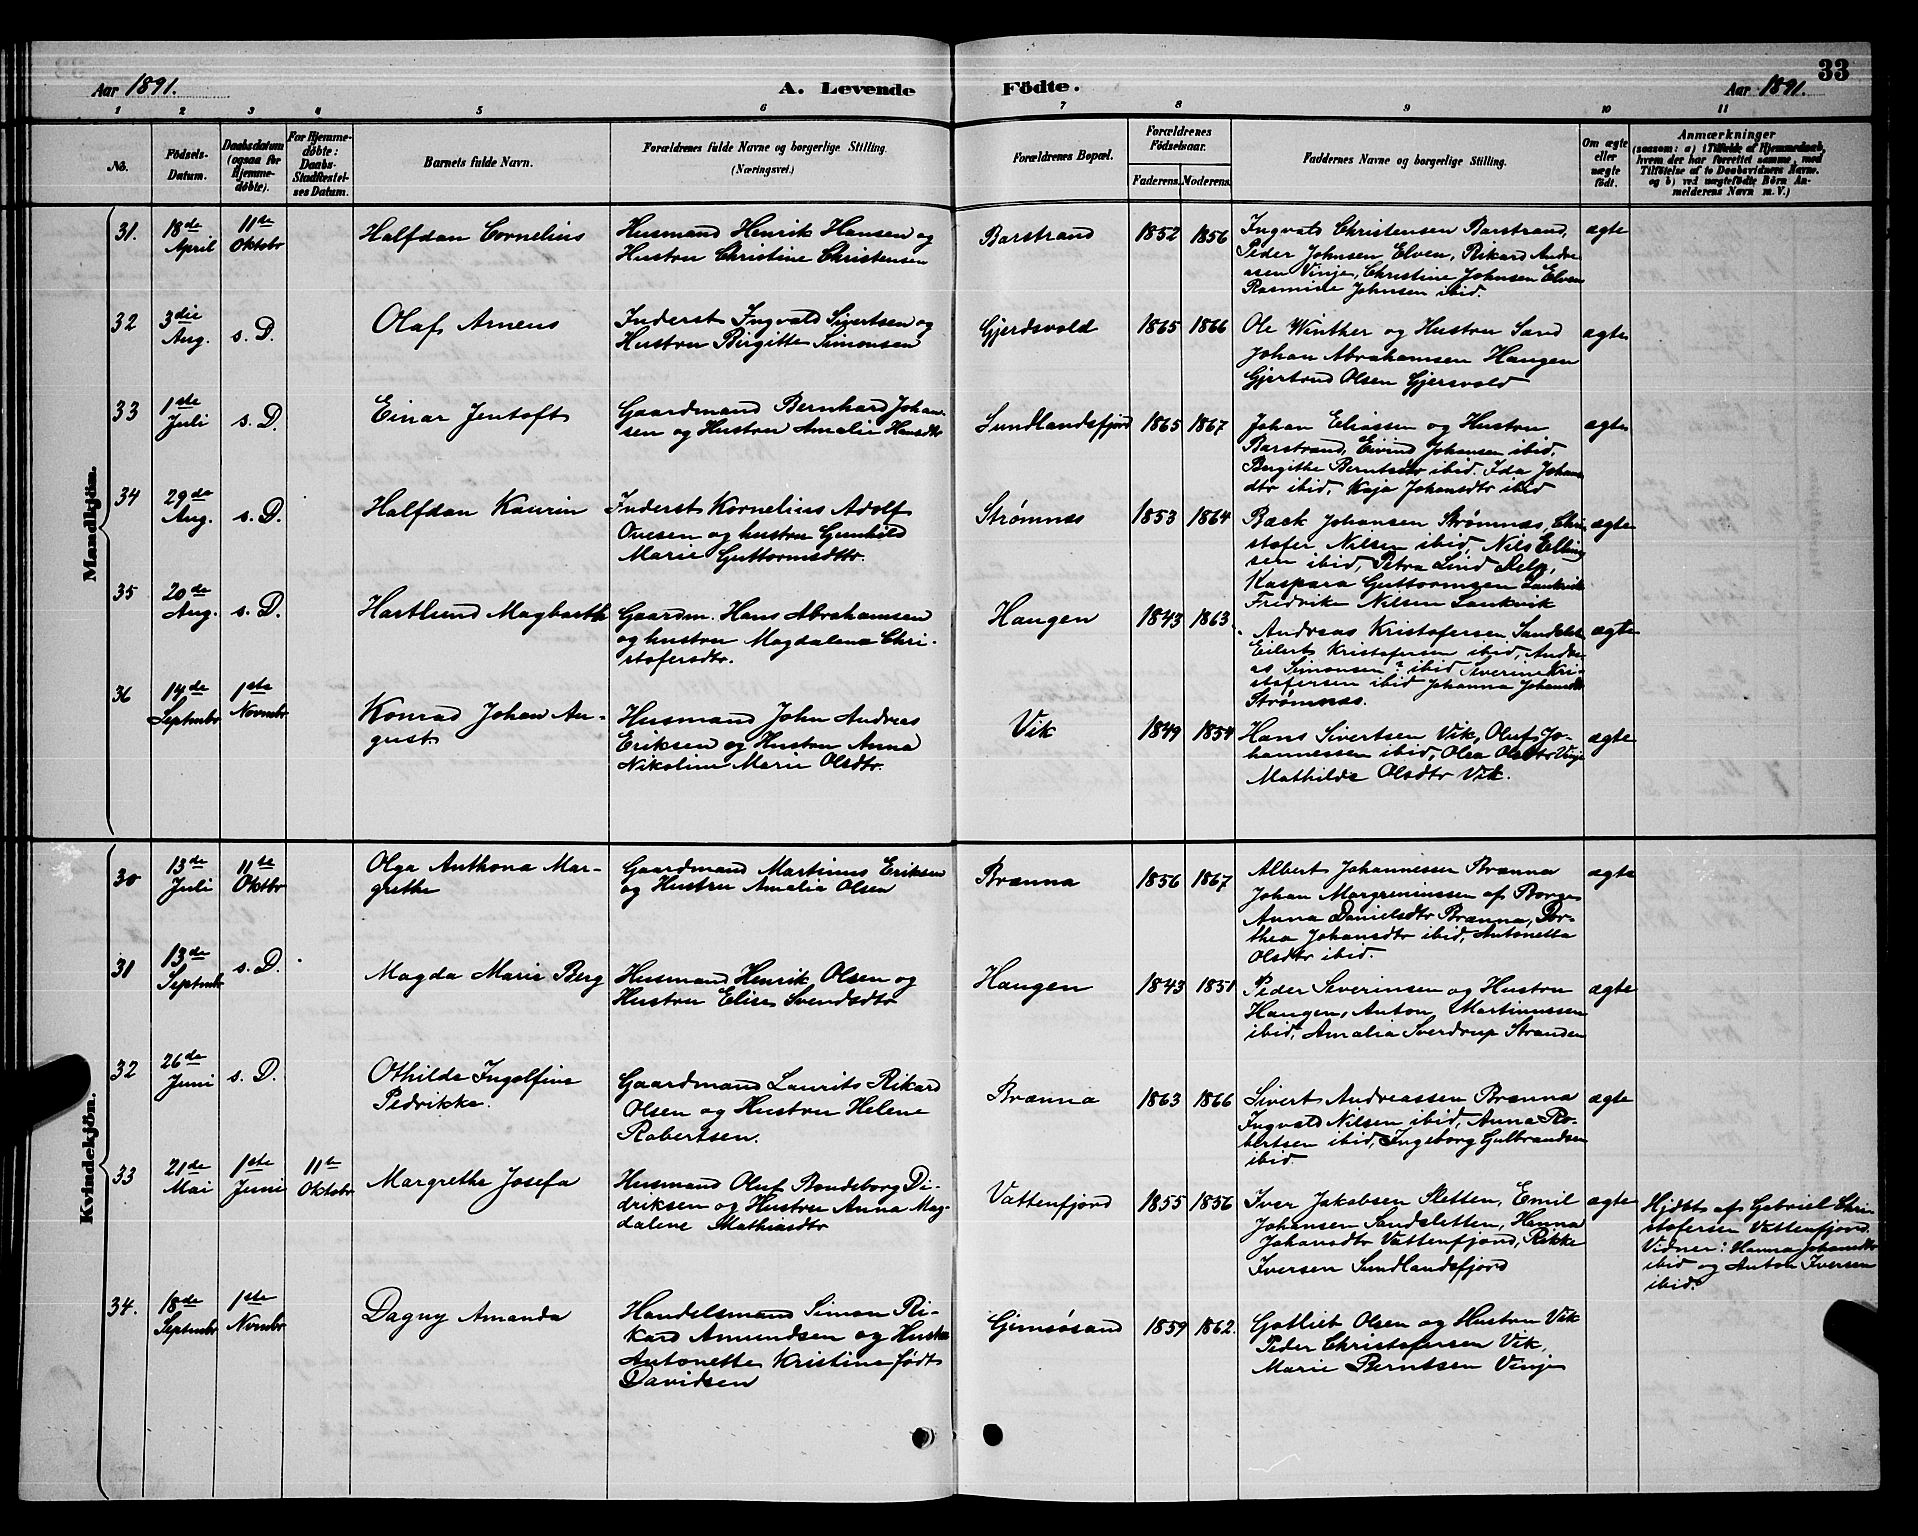 Aar 1891.
A. Levende Födte.
Aar 1891.
33
1 2 3 4 5 6 7 8 9 10 11
No.
Födsels-Datum.
Daabsdatum (ogsaa for Hjemmedöbte).
For Hjemmedöbte: Daabs-Stadfæstelses Datum.
Barnets fulde Navn.
Forældrenes fulde Navne og borgerlige Stilling. (Næringsvei.)
Forældrenes Bopæl.
Forældrenes Födselsaar.
Faderens. Moderens.
Faddernes Navne og borgerlige Stilling.
Om ægte eller uægte födt.
Anmærkninger
(saasom: a) i Tilfælde af Hjemmedaab, hvem der har forrettet samme, med Tilföielse af to Daabsvidners Navne, og b) ved uægtefödte Börn Anmelderens Navn m. V.)
Mandkjön.
31. 18de April 11te Oktobr
Halfdan Cornelius
Husmand Henrik Hansen og
Hustru Christine Christensen
Barstrand 1852 1856
Ingvald Christensen Barstrand,
Peder Johnsen Elven, Rikard Andre-
asen Vinje, Christine Johnsen Elven
Rasmine Johnsen ibid.
ægte
32 3die Aug. s. D.
Olaf Arneus
Inderst Ingvald Sivertsen og
Hustru Birgitte Simonsen
Gjerdsvold 1865 1866
Ole Winther og Hustru Sand
Johan Abrahamsen Haugen
Gjertrud Olsen Gjersvold
ægte
33 1ste Juli s. D.
Einar Jentoft
Gaardmand Bernhard Johan-
sen og Hustru Amalie Hansdtr
Sundlandsfjord 1865 1867
Johan Eliassen og Hustru
Barstrand, Eivind Johansen ibid,
Bergithe Berntsdtr ibid. Ida Johans
dtr ibid, Kaja Johansdtr ibid
ægte
34 29de Aug. s. D.
Halfdan Kaurin
Inderst Kornelius Adolf
Ovesen og hustru Gunhild
Marie Guttormsdtr.
Strømnæs 1853 1864
Bæck Johansen Strømnæs, Chri-
stofer Nilsen ibid, Nils Elling
sen ibid, Petra Lind
Kaspara Guttormsen Laukvik
Fredrike Nilsen Laukvik
ægte
35 20de Aug. s. D.
Hartlund Magbarth
Gaardm. Hans Abrahamsen
og hustru Magdalena Chri-
stofersdtr.
Haugen 1843 1863.
Andreas Kristofersen
Eilert Kristofersen ibid, Andre
as Simonsen? ibid Severine Kri-
stofersen ibid Johanna Johansdtr
Strømnæs.
ægte
36 14de Septmbr 1ste Novmbr
Konrad Johan Au-
gust.
Husmand John Andreas
Eriksen og Hustru Anna
Nikoline Marie Olsdtr.
Vik 1849 1854
Hans Sivertsen Vik, Oluf Jo-
hannessen ibid, Olea Olsdtr Vinje
Mathilde Olsdtr Vik.
ægte
Kvindekjön.
30 13de Juli 11te Oktbr
Olga Anthona Mar-
grethe
Gaardmand Martinus Eriksen
og Hustru Amalia Olsen
Brænna 1856 1867
Albert Johannessen Brænna
Johan Margreninssen af Borge
Anna Danielsdtr Brænna, Dor-
thea Johansdtr ibid, Antonetta
Olsdtr ibid.
ægte
31 13de Septmbr s. D.
Magda Marie Berg
Husmand Henrik Olsen og
Hustru Elise Svendsdtr
Haugen 1843 1851
Peder Severinsen og Hustru
Haugen, Anton Martinussen
ibid, Amalia Sverdrup Stranden
ægte
32 26de Juni s. D.
Othilde Ingolfine
Pedrikke.
Gaardmand Laurits Rikard
Olsen og Hustru Helene
Robertsen.
Brænna 1863 1866
Sivert Andreassen Brænna
Ingvald Nilsen ibid, Anna Ro-
bertsen ibid, Ingeborg Gulbrandsen
ibid.
ægte
33 21de Mai 1ste Juni 11te Oktobr
Margrethe Josefa
Husmand Oluf Bondeborg Di-
driksen og Hustru Anna Mag-
dalene Mathiasdtr
Vattenfjord 1855 1856
Iver Jakobsen Sletten, Emil
Johansen Sandsletten, Hanna
Johansdtr Vattenfjord, Rikke
Iversen Sundlandsfjord
ægte
Hjdbt af Gabriel Chri-
stofersen Vattenfjord.
Vidner: Hanna Johansdtr
ibid og Anton Iversen
ibid.
34. 18de Septmbr 1ste Novmbr
Dagny Amanda
Handelsmand Simon Ri-
kard Amundsen og Hustru
Antonette Kristine født
Davidsen
Gimsøsand 1859 1862.
Gotlieb Olsen og Hustru Vik
Peder Christofersen Vik,
Marie Berntsen Vinje